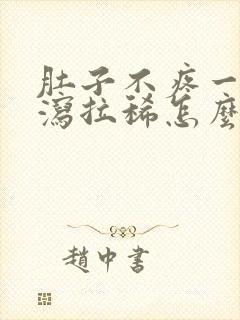 肚子不疼一
瀉拉稀怎麼
趙中書